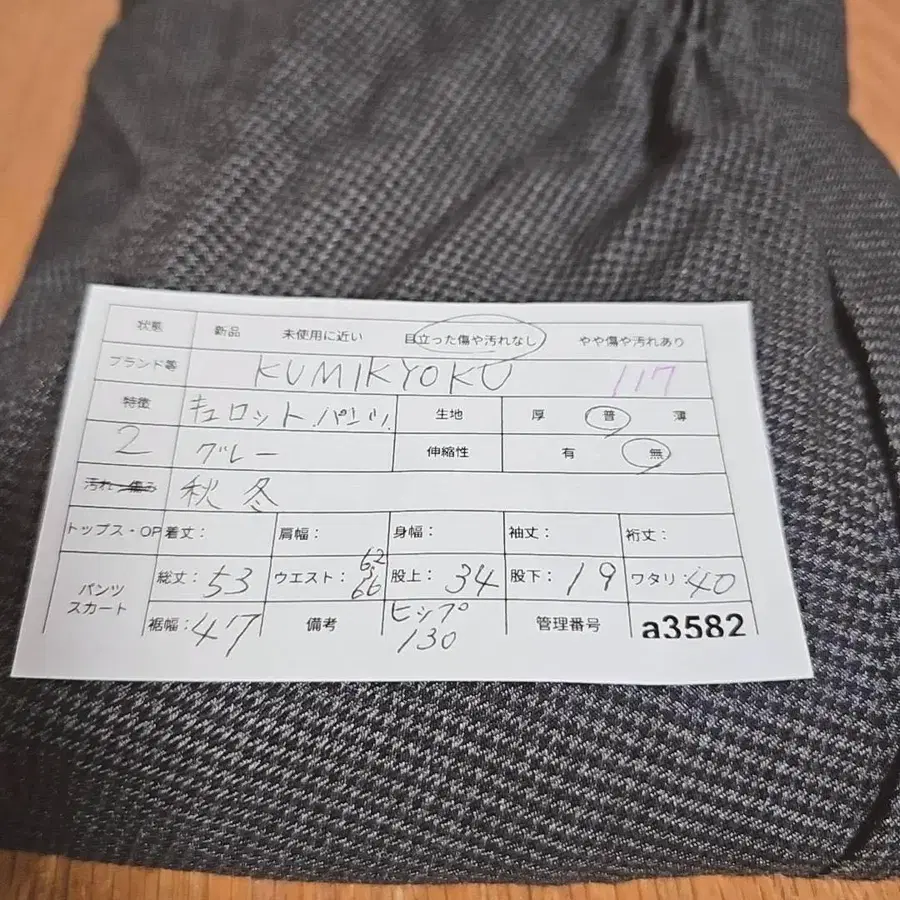 状態 新品 未使用に近い 目立った傷や汚れなし やや傷や汚れあり
ブランド等 KUMIKYOKU 117
特徴 キュロットパンツ 生地 厚 普 薄
2 グレー 伸縮性 有 無
汚れ・傷み 秋冬
トップス・OP 着丈: 肩幅: 身幅: 袖丈: 裄丈:
パンツ スカート 総丈:53 ウエスト:62 66 股上:34 股下:19 ワタリ:40
裾幅:47 備考 ヒップ 130 管理番号 a3582